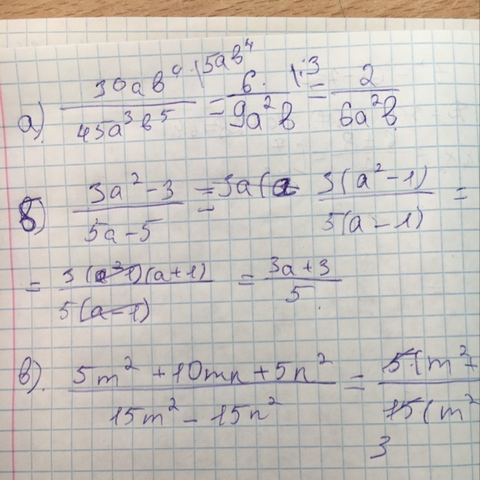 а) 30ab⁴ /5ab⁴ / 45a³b⁵ = 6 / 9a²b /:3 = 2 / 6a²b
б) 3a² - 3 / 5a - 5 = 3a( 3(a² - 1) / 5(a - 1) =
= 3(a-1)(a+1) / 5(a-1) = 3a+3 / 5
в). 5m² + 10mn + 5n² / 15m² - 15n² = 5(m² + / 15(m²
3